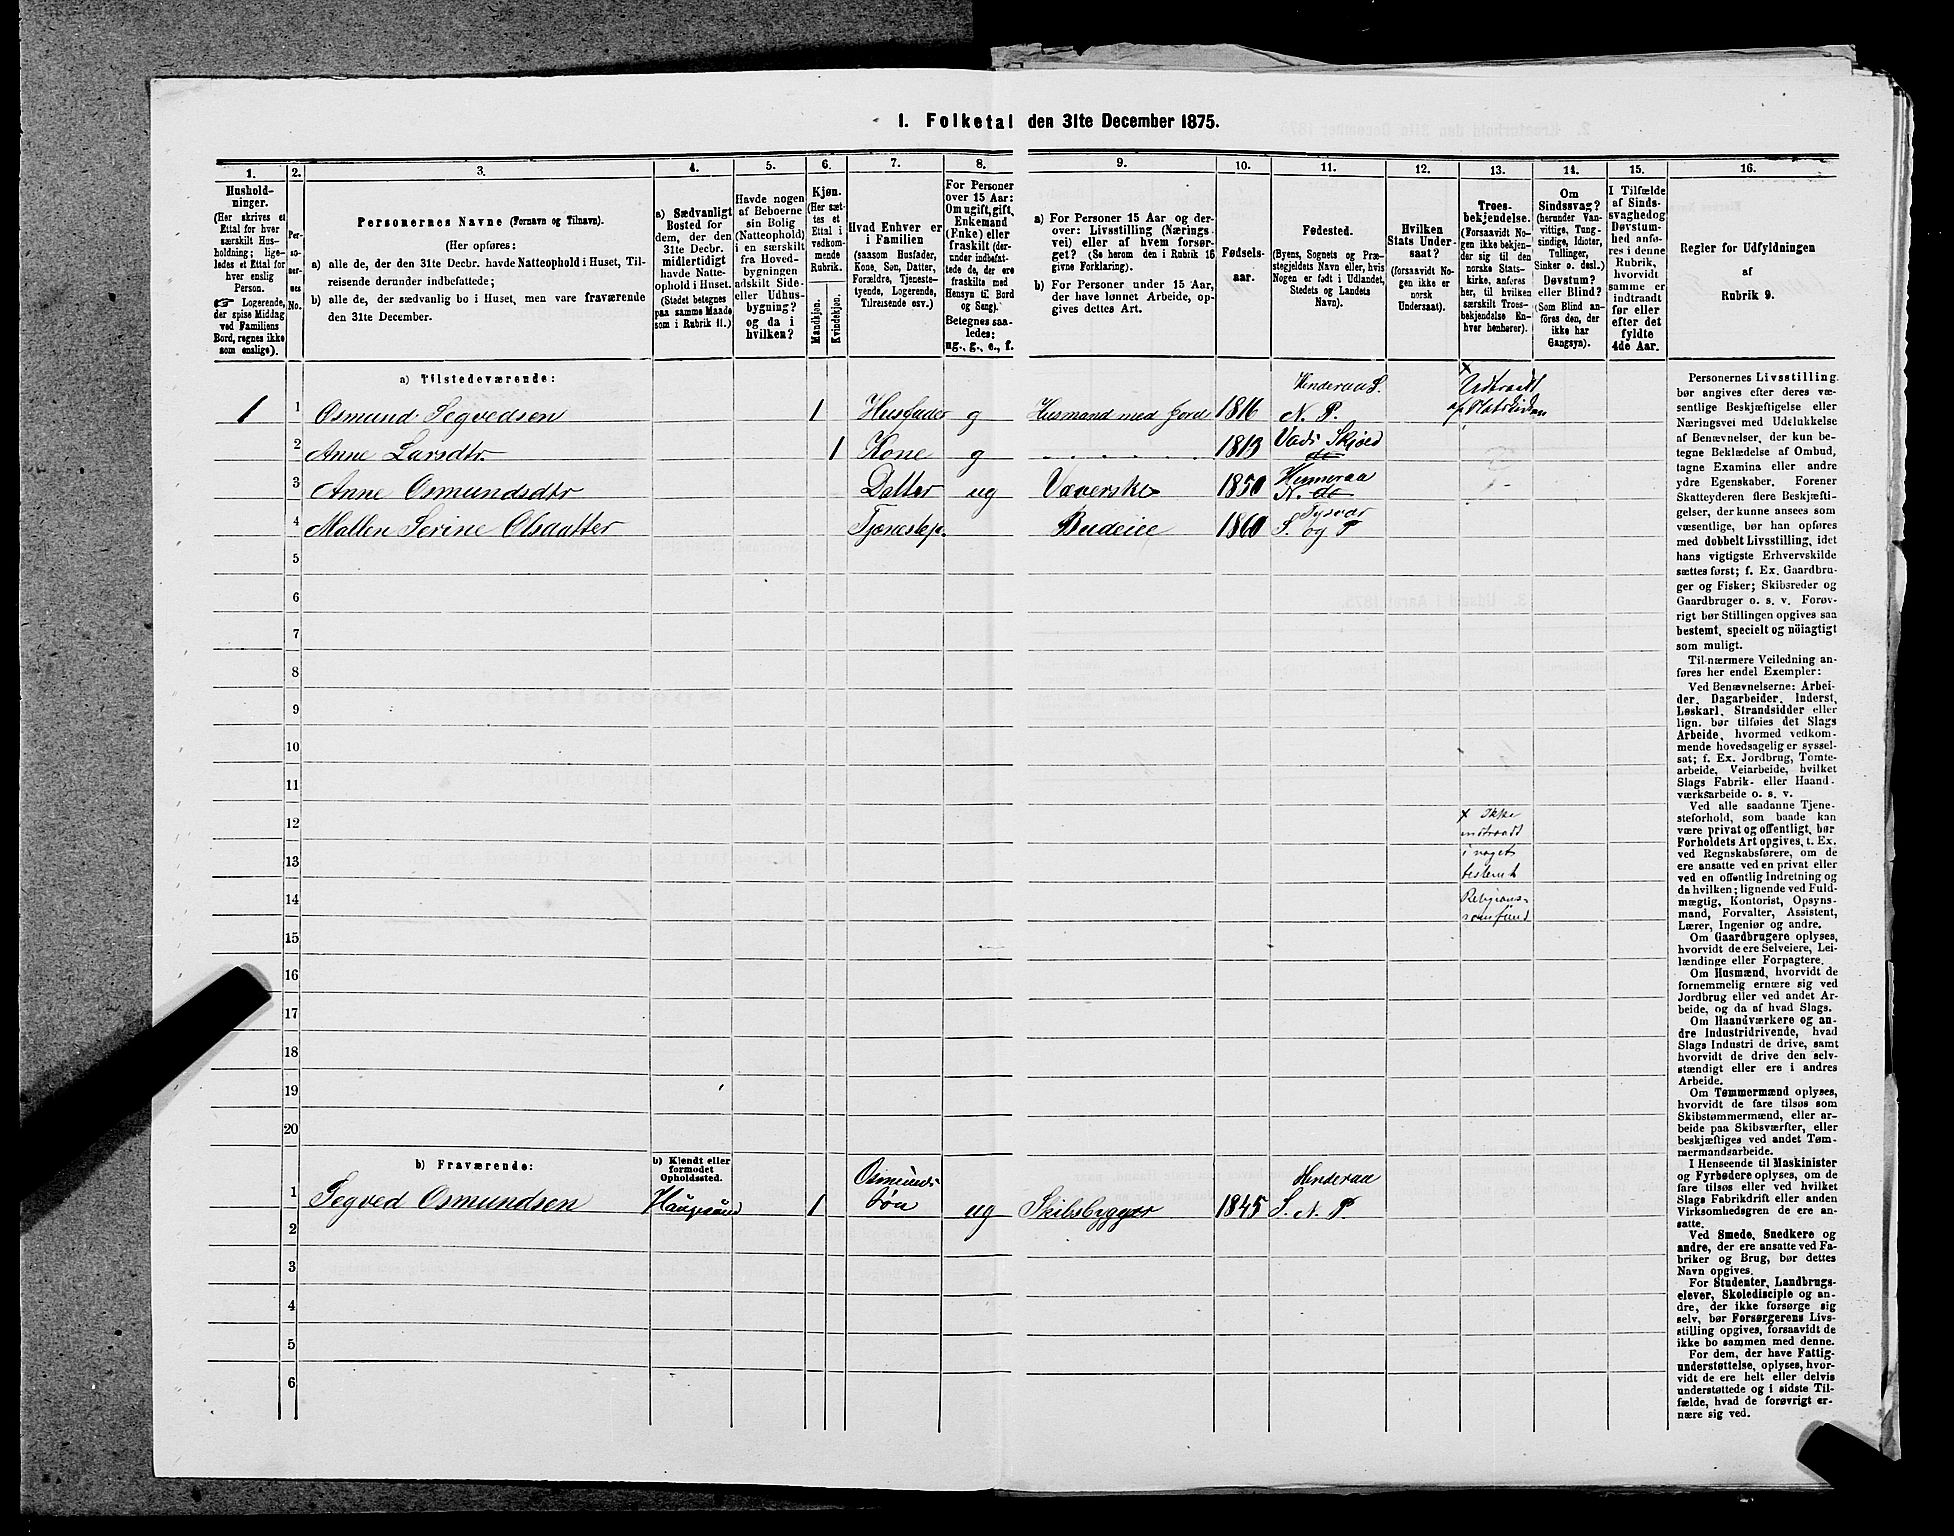 1. Folketal den 31te December 1875.
1.
2.
3.
4.
5.
6.
7.
8.
9.
10.
11.
12.
13.
14.
15.
16.
Hushold-
ninger.
(Her skrives et
Ettal for hver
særskilt Hus-
holdning; lige-
ledes et Ettal for
hver enslig
Person.
☞ Logerende,
der spise Middag
ved Familiens
Bord, regnes ikke
som enslige).
Per-
so-
ner-
nes
No.
Personernes Navne (Fornavn og Tilnavn).
(Her opføres:
a) alle de, der den 31te Decbr. havde Natteophold i Huset, Til-
reisende derunder indbefattede;
b) alle de, der sædvanlig bo i Huset, men vare fraværende
den 31te December.
a) Sædvanligt
Bosted for
dem, der den
31te Decbr.
midlertidigt
havde Natte-
ophold i Huset.
(Stedet betegnes
paa samme Maade
som i Rubrik 11.)
Havde nogen
af Beboerne
sin Bolig
(Natteophold)
i en særskilt
fra Hoved-
bygningen
adskilt Side-
eller Udhus-
bygning?
og da i
hvilken?
Kjøn.
(Her sæt-
tes et
Ettal i
vedkom-
mende
Rubrik.
Mandkjøn.
Kvindekjøn.
Hvad Enhver er
i Familien
(saasom Husfader,
Kone, Søn, Datter,
Forældre, Tjeneste-
tyende, Logerende,
Tilreisende osv.)
For Personer
over 15 Aar:
Om ugift, gift,
Enkemand
(Enke) eller
fraskilt (der-
under indbefat-
tede de, der ere
fraskilte med
Hensyn til Bord
og Seng).
Betegnes saa-
ledes:
ug., g., e., f.
a) For Personer 15 Aar og der-
over: Livsstilling (Nærings-
vei) eller af hvem forsør-
get? (Se herom den i Rubrik 16
givne Forklaring).
b) For Personer under 15 Aar,
der have lønnet Arbeide, op-
gives dettes Art.
Fødsels-
aar.
Fødested.
(Byens, Sognets og Præ-
stegjeldets Navn eller, hvis
Nogen er født i Udlandet,
Stedets og Landets
Navn).
Hvilken
Stats Under-
saat?
(forsaavidt No-
gen ikke er
norsk
Undersaat).
Troes-
bekjendelse.
(Forsaavidt No-
gen ikke bekjen-
der sig til den
norske Stats-
kirke, anføres
her, til hvilken
særskilt Troes-
bekjendelse En-
hver henhører).
Om
Sindssvag?
(herunder Van-
vittige, Tung-
sindige, Idioter,
Tullinger,
Sinker o. desl.)?
Døvstum?
eller Blind?
(Som Blind an-
føres den, der
ikke har
Gangsyn).
I Tilfælde
af Sinds-
svaghed og
Døvstum-
hed anfø-
res i denne
Rubrik,
hvorvidt
samme er
indtraadt
før eller
efter det
fyldte
4de Aar.
Regler for Udfyldningen
af
Rubrik 9.
a) Tilstedeværende:
1 1 Osmund Segvedsen 1 Husfader g Husmand med Jord 1816 Henderaa S. N. P. x Udtraadt af Statskirken
2 Anne Larsdtr. 1 Kone g 1813 Vads Skjold do
3 Anne Osmundsdtr Datter ug Væverske 1850 N. do
4 Mallen Serine Olsdatter Tjenestep. Budeie 1860 Tysvær S. og P
5
6
7
8
9
10
11
12
13
14
15
16
17
18
19
20
x Ikke
indtraadt
i noget
bestemt
Religions-
samfund
b) Fraværende:
b) Kjendt eller
formodet
Opholdssted.
1 Segved Osmundsen Haugesund 1 Osmunds Søn ug Skibsbygger 1845 Henderaa S. N. P.
2
3
4
5
6
Personernes Livsstilling
bør angives efter deres væ-
sentlige Beskjæftigelse eller
Næringsvei med Udelukkelse
af Benævnelser, der kun be-
tegne Beklædelse af Ombud,
tagne Examina eller andre
ydre Egenskaber. Forener
Skatteyderen flere Beskjæfti-
gelser, der kunne ansees som
væsentlige, bør han opføres
med dobbelt Livsstilling, idet
hans vigtigste Erhvervskilde
sættes først; f. Ex. Gaardbru-
ger og Fisker; Skibsreder og
Gaardbruger o. s. v. Forøv-
rigt bør Stillingen opgives saa
bestemt, specielt og nöiagtigt
som muligt.
Til nærmere Veiledning an-
føres her endel Exempler:
Ved Benævnelserne: Arbei-
der, Dagarbeider, Inderst,
Løskarl, Strandsidder eller
lign. bør tilføies det Slags
Arbeide, hvormed vedkom-
mende hovedsagelig er syssel-
sat; f. Ex. Jordbrug, Tomte-
arbeide, Veiarbeide, hvilket
Slags Fabrik- eller Haand-
værksarbeide o. s. v.
Ved alle saadanne Tjene-
steforhold, som baade kan
være privat og offentligt, bør
Forholdets Art opgives, t. Ex.
ved Regnskabsførere, om de
ere ansatte ved en privat eller
ved en offentlig Indretning og
da hvilken; lignende ved Fuld-
mægtig, Kontorist, Opsyns-
mand, Forvalter, Assistent,
Lærer, Ingeniør og andre.
Om Gaardbrugere oplyses,
hvorvidt de ere Selveiere, Lei-
lændinge eller Forpagtere.
Om Husmænd, hvorvidt de
fornemmelig ernære sig ved
Jordbrug eller ved andet Ar-
beide, og da af hvad Slags.
Om Haandværkere og an-
dre Industridrivende, hvad
Slags Industri de drive, samt
hvorvidt de drive den selv-
stændigt eller ere i andres
Arbeide.
Om Tømmermænd oplyses,
hvorvidt de fare tilsøs som
Skibstømmermænd, eller ar-
beide paa Skibsværfter, eller
beskjæftiges ved andet Tøm-
mermandsarbeide.
I Henseende til Maskinister
og Fyrbødere oplyses, om de
fare tilsøs eller ved hvilket
Slags Fabrikdrift eller anden
Virksomhedsgren de ere an-
satte.
Ved Smede, Snedkere og
andre, der ere ansatte ved Fa-
briker og Brug, bør dettes
Navn opgives.
For Studenter, Landbrugs-
elever, Skoledisciple og an-
dre, der ikke forsørge sig
selv, bør Forsørgerens Livs-
stilling opgives, forsaavidt de
ikke bo sammen med denne.
For dem, der have Fattig-
understøttelse, oplyses, hvor-
vidt de ere helt eller delvis
understøttede og i sidste Til-
fælde, hvad de forøvrigt er-
nære sig ved.